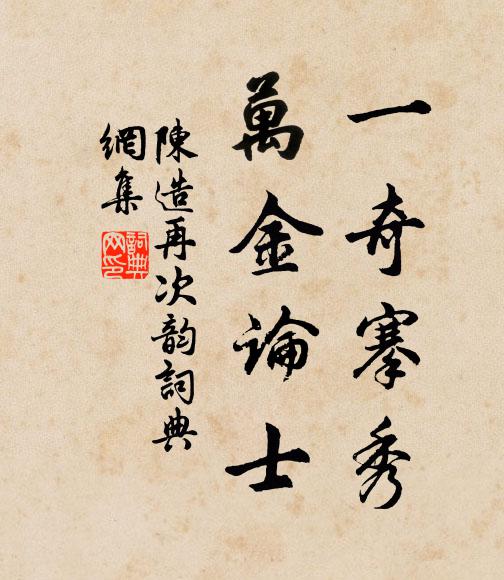 一奇搴秀
萬金論士
陳造再次韵詞典
網集
詞典網印